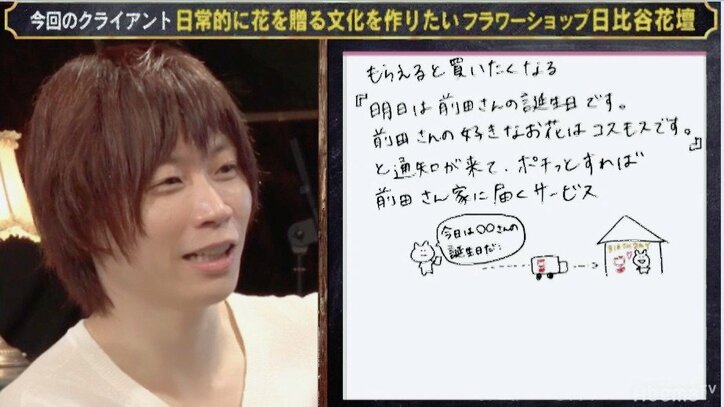 今回のクライアント 日常的に花を贈る文化を作りたい フラワーショップ 日比谷花壇
もらえると買いたくなる
『明日は前田さんの誕生日です。
前田さんの好きなお花はコスモスです。』
と通知が来て、ポチっとすれば
前田さん家に届くサービス
今日は〇〇さんの
誕生日だ!